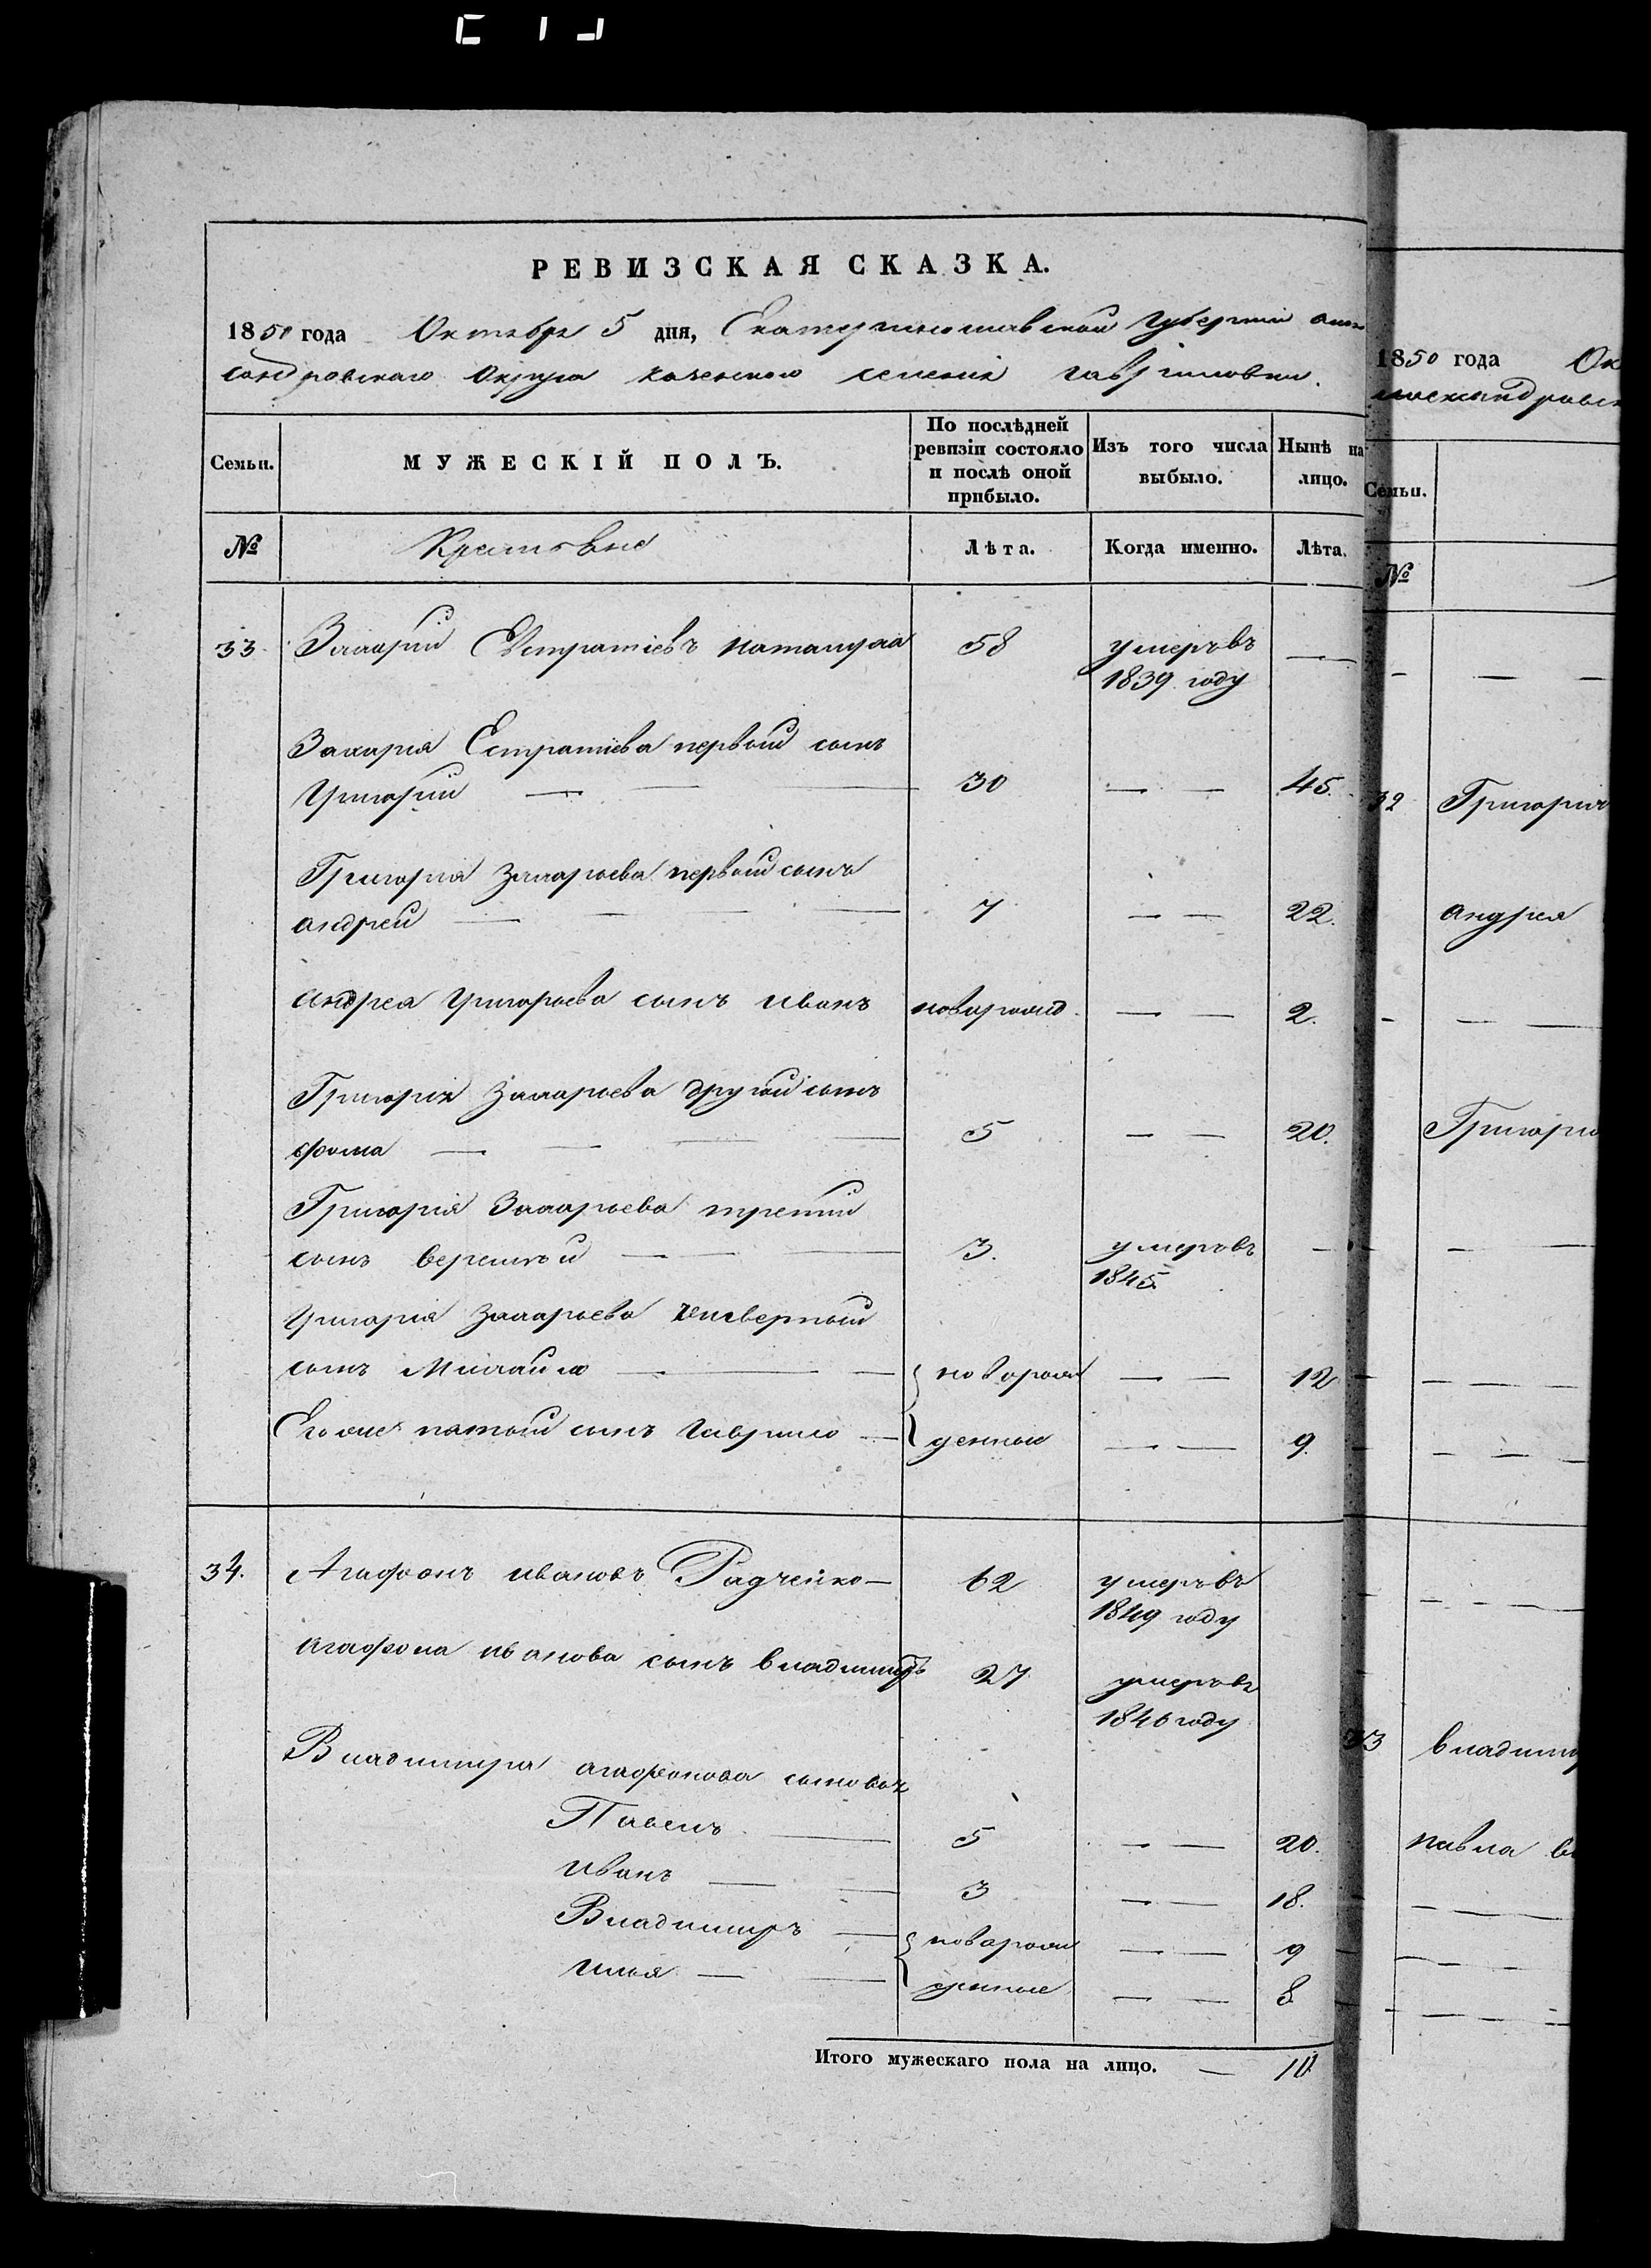 РЕВИЗСКАЯ СКАЗКА.
1850 года Октября 5 дня, Екатеринославской Губернии алек
сандровскаго Округа казенного селения гавриловки.
Семьи.
МУЖЕСКІЙ ПОЛЪ.
По послѣдней ревизіи состояло и послѣ оной прибыло.
Изъ того числа выбыло.
Нынѣ на лицо.
№
Лѣта.
Когда именно.
Лѣта.
33 Захарій Евстратіевъ 58 умеръ въ —
1839 году
Захария Естратіева первый сынъ
Григорій — — 30 — — 45.
Григория Захарьева первый сынъ
андрей — — 7 — — 22.
андрея Григорьева сынъ иванъ новорожд — — 2.
Григорія Захарьева другий сынъ
фома — — 5 — — 20.
Григорія Захарьева третий
сынъ — — 3. умеръ въ —
1845.
Григория Захарьева четвертый
сынъ Михайло — — новорож — — 12
Его же пятый сынъ Гаврило — денные — — 9.
34. Агафонъ ивановъ Радченко — 62 умеръ въ
1849 году
агафона иванова сынъ владимиръ 27 умеръ въ
1846 году
Владимира агафонова сыновья
Павелъ — 5 — — 20.
иванъ — — 3 — — 18.
Владимиръ — новорож — — 9
илья — — денные — — 8
Итого мужескаго пола на лицо. — 10
1850 года Ок
Семьи.
№
32 Григория
андрея
Григори
33 владими
павла в